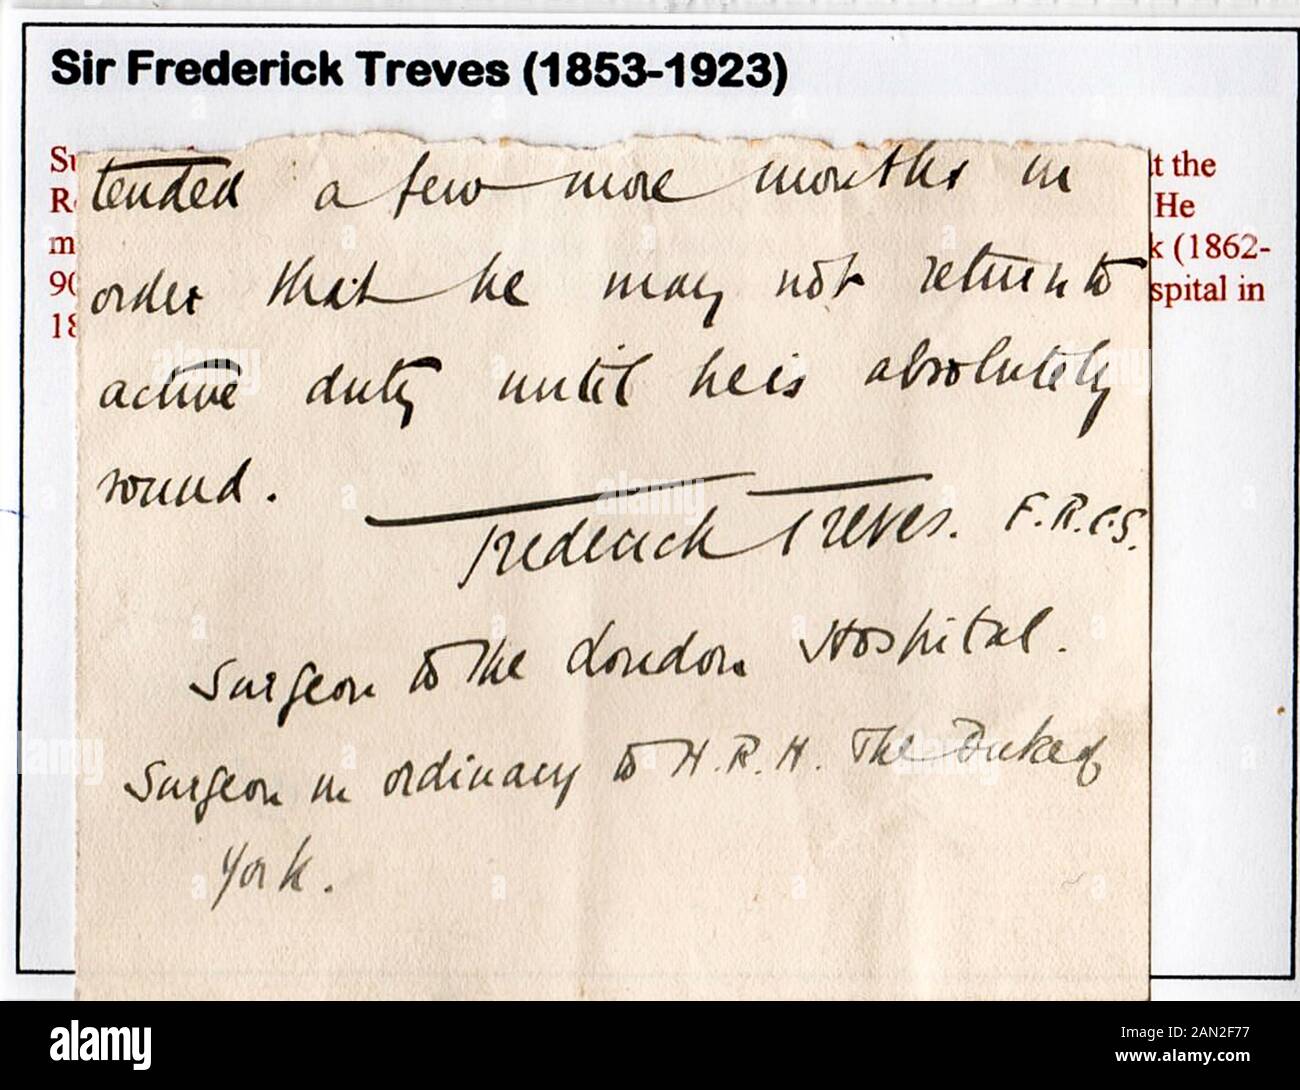 Sir Frederick Treves (1853-1923)
tended a few more months in
order that he may not return to
active duty until he is absolutely
sound.
Frederick Treves. F.R.C.S.
Surgeon to the London Hospital.
Surgeon in ordinary to H.R.H. The Duke of
York.
Su
t the
R
He
m
k (1862-
90
spital in
18
alamy
Image ID: 2AN2F77
www.alamy.com